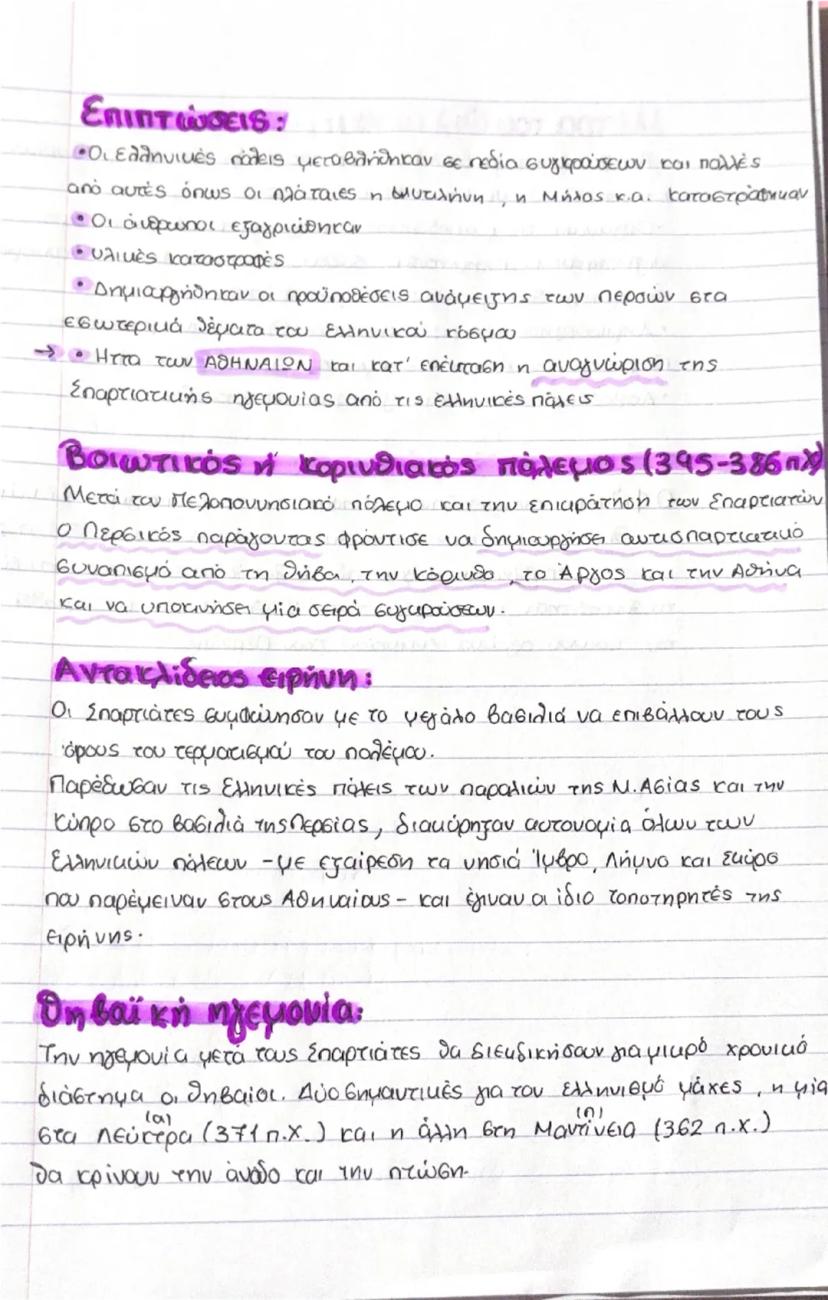 Επιπτώσεις:
•Οι Ελληνικές πόλεις μεταβλήθηκαν σε πεδία συγκρούσεων και πολλές
από αυτές όπως οι πλάταιες η Μυτιλήνη, η Μήλος κ.α. καταστράφηκαν
• Οι άνθρωποι εξαγριώθηκαν
• υλικές καταστροφές
• Δημιουργήθηκαν οι προϋποθέσεις ανάμειξης των Περσών στα
εσωτερικά θέματα του ελληνικού κόσμου
→ • Ηττα των ΑΘΗΝΑΙΩΝ και κατ' επέκταση η αναγνώριση της
Σπαρτιατικής ηγεμονίας από τις ελληνικές πόλεις
Βοιωτικός ή κορινθιακός πόλεμος (395-386 π.χ)
Μετά τον Πελοποννησιακό πόλεμο και την επικράτηση των Σπαρτιατών
ο Περσικός παράγοντας φρόντισε να δημιουργήσει αντισπαρτιατικό
συνασπισμό από τη Θήβα, την κόρινθο, το Άργος και την Αθήνα
και να υποκινήσει μία σειρά συγκρούσεων.
Αντακλίδειος ειρήνη:
Οι Σπαρτιάτες συμφώνησαν με το μεγάλο βασιλιά να επιβάλλουν τους
όρους του τερματισμού του πολέμου.
Παρέδωσαν τις Ελληνικές πόλεις των παραλιών της Μ. Ασίας και την
Κύπρο στο βασιλιά της Περσίας, διακύρηταν αυτονομία όλων των
Ελληνικών πόλεων - με εξαίρεση τα νησιά Ίμβρο, Λήμνο και Σκύρο
που παρέμειναν στους Αθηναίους - και έγιναν οι ίδιο τοποτηρητές της
ειρήνης.
Θηβαϊκή ηγεμονία:
Την ηγεμονία μετά τους Σπαρτιάτες θα διεκδικήσουν για μικρό χρονικό
διάστημα οι Θηβαίοι. Δύο σημαντικές για τον ελληνισμό μάχες, η μία
στα Λεύκτρα (α) (371 π.Χ.) και η άλλη στη Μαντίνεια (η) (362 π.χ.)
θα κρίνουν την άνοδο και την πτώση.